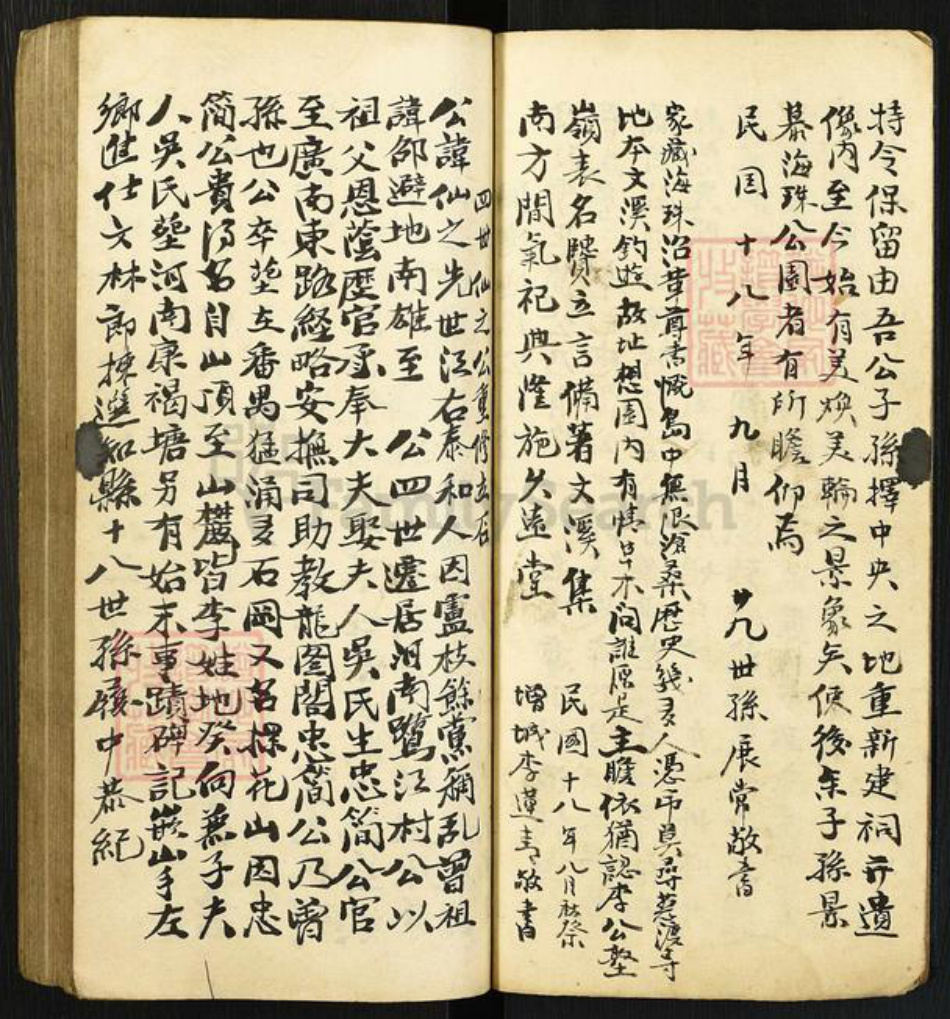 特令保留由吾公子孫擇中央之地重新建祠并遺
像內至今始有美煥美輪之景象矣使後年子孫景
慕海珠公園者有所瞻仰焉
民国十八年九月 廿九世孫展常敬書
家藏海珠沿革尊素慨島中無限滄桑歷史幾多人憑弔莫尋慈渡寺
地本文溪釣遊故址想園內有情草木问誰原是主瞻依猶認李公墪
嶺表名賢立言備著文溪集 民國十八年八月秋祭
南方間氣祀典隆施久遠堂 增城李蓮青敬書
四世仙之公重修立石
公諱仙之先世江右泰和人因盧枝餘黨稱乱曾祖
諱邰避地南雄至 公四世遷居河南鷺江村公以
祖父恩蔭歷官承奉大夫娶夫人吳氏生忠簡公官
至廣南東路経略安撫司助教龍圖閣忠簡公乃曾
孫也公卒塟在番禺猛涌多石岡又名探花山因忠
簡公貴得名自山頂至山麓皆李姓地癸向兼子夫
人吳氏塟河南康褐塘另有始末事蹟碑記嵌山手左
鄉進仕文林郎揀選知縣十八世孫殿中恭紀
FamilySearch